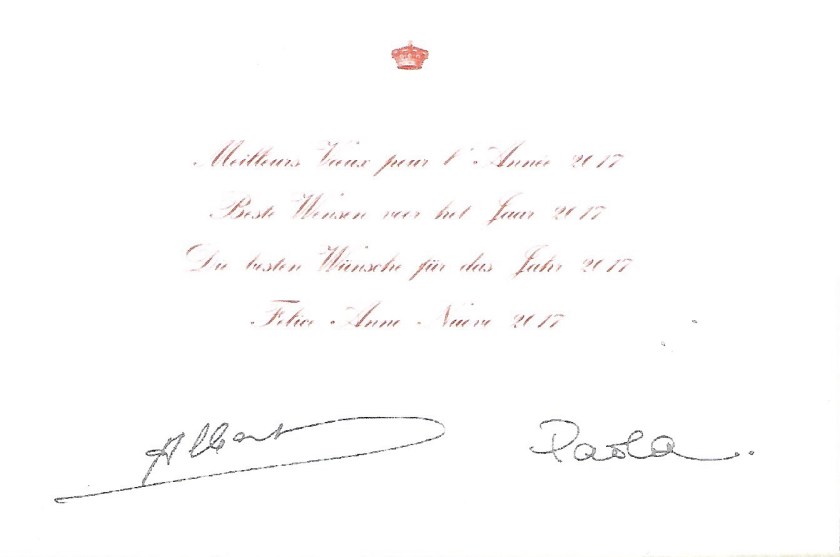 Meilleurs Vœux pour l'Année 2017
Beste Wensen voor het Jaar 2017
Die besten Wünsche für das Jahr 2017
Felice Anno Nuovo 2017
Albert
Paola.